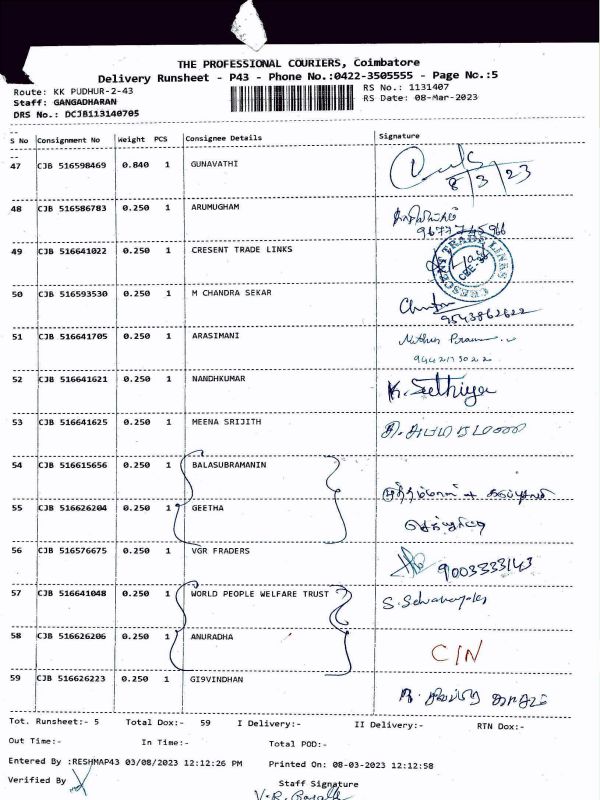 THE PROFESSIONAL COURIERS, Coimbatore
Delivery Runsheet - P43 - Phone No.:0422-3505555 - Page No.:5
Route: KK PUDHUR-2-43
RS No.: 1131407
Staff: GANGADHARAN
RS Date: 08-Mar-2023
DRS No.: DCJB113140705
S No Consignment No Weight PCS Consignee Details Signature
47 CJB 516598469 0.840 1 GUNAVATHI
8/3/23
48 CJB 516586783 0.250 1 ARUMUGHAM
49 CJB 516641022 0.250 1 CRESENT TRADE LINKS
CRESCENT TRADE LINKS
50 CJB 516593530 0.250 1 M CHANDRA SEKAR
9543862622
51 CJB 516641705 0.250 1 ARASIMANI
52 CJB 516641621 0.250 1 NANDHKUMAR
K. Sethiya
53 CJB 516641625 0.250 1 MEENA SRIJITH
54 CJB 516615656 0.250 1 BALASUBRAMANIN
55 CJB 516626204 0.250 1 GEETHA
56 CJB 516576675 0.250 1 VGR FRADERS
9003333143
57 CJB 516641048 0.250 1 WORLD PEOPLE WELFARE TRUST
58 CJB 516626206 0.250 1 ANURADHA
C/N
59 CJB 516626223 0.250 1 GI9VINDHAN
Tot. Runsheet:- 5 Total Dox:- 59 I Delivery:- II Delivery:- RTN Dox:-
Out Time:- In Time:- Total POD:-
Entered By :RESHMAP43 03/08/2023 12:12:26 PM Printed On: 08-03-2023 12:12:58
Verified By Staff Signature